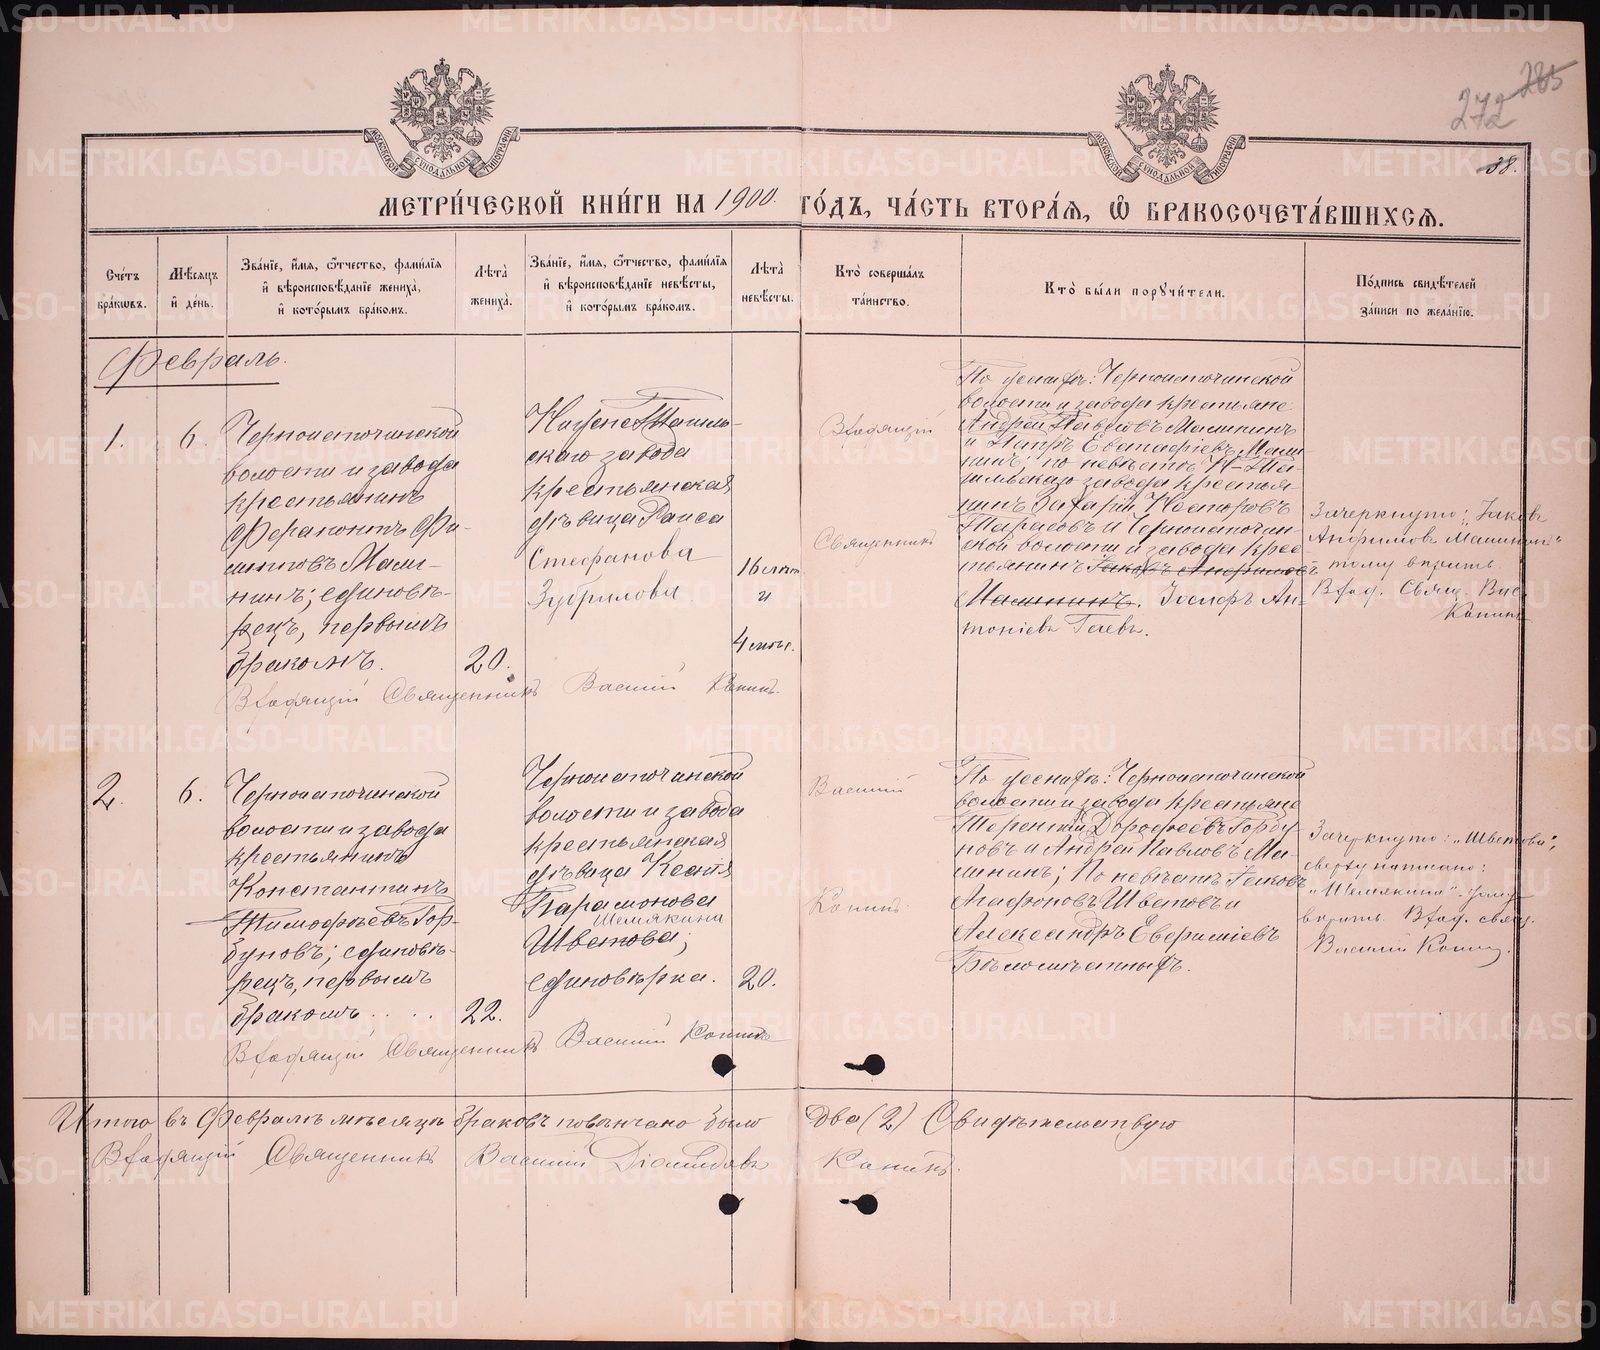 285
272
38.
МОСКОВСКОЙ СУНОДАЛЬНОЙ ТИПОГРАФІИ
МОСКОВСКОЙ СУНОДАЛЬНОЙ ТИПОГРАФІИ
МЕТРИ́ЧЕСКОЙ КНИ́ГИ НА 1900. ГО́ДЪ, ЧА́СТЬ ВТОРА́Я, Ѽ БРАКОСОЧЕТА́ВШИХСЯ.
Сче́тъ бра́кѡвъ.
Мѣ́сяцъ и҆ де́нь.
Зва́нїе, и҆́мя, ѻ҆́тчество, фами́лїя
и҆ вѣроисповѣ́данїе жениха̀,
и҆ кото́рымъ бра́комъ.
Лѣ́та жениха̀.
Зва́нїе, и҆́мя, ѻ҆́тчество, фами́лїя
и҆ вѣроисповѣ́данїе невѣ́сты,
и҆ кото́рымъ бра́комъ.
Лѣ́та невѣ́сты.
Кто̀ соверша́лъ
та́инство.
Кто̀ бы́ли поручи́тели.
По́дпись свидѣ́телей
за́писи по жела́нїю.
Февраль.
1.
6.
Черноисточинской
волости и завода
крестьянинъ
Ферапонтъ Фи-
липповъ Маш-
нинъ; единовѣ-
рецъ, первымъ
бракомъ.
20.
Нижне Тагиль-
скаго завода
крестьянская
дѣвица Раиса
Стефанова
Зубрилова
16 лѣтъ
и
4 мѣс.
Вѳодящій
Священникъ
По женихѣ: Черноисточинской
волости и завода крестьяне
Андрей Павловъ Машнинъ
и Петръ Евстафіевъ Маш
нинъ; по невѣстѣ Н-Та-
гильскаго завода крестья-
нинъ Захарій Несторовъ
Тарасовъ и Черноисточин-
ской волости и завода крес
тьянинъ Іаковъ Анфимовъ
Машнинъ. Іосифъ Ан-
тоніевъ Гаевъ.
Зачеркнуто: „Іаковъ
Анфимовъ Машнинъ"
тому вѣрить.
Священникъ Василій Конинъ.
2.
6.
Черноисточинской
волости и завода
крестьянинъ
Константинъ
Тимофѣевъ Гор-
буновъ; единовѣ-
рецъ, первымъ
бракомъ....
22.
Черноисточинской
волости и завода
крестьянская
дѣвица Ксенія
Парамонова
Шемякина
Шветова;
единовѣрка.
20.
Василій
Конинъ.
По женихѣ: Черноисточинской
волости и завода крестьяне
Терентій Дорофеевъ Горбу
новъ и Андрей Павловъ Ма-
шнинъ; По невѣстѣ Іаковъ
Агафоновъ Шветовъ и
Александръ
Зачеркнуто: „Шветова";
сверху написано:
„Шемякина"
вѣрить. свящ.
Василій Конинъ.
Священникъ Василій Конинъ
Итого въ Февралѣ мѣсяцѣ браковъ повѣнчано было Два (2) Свидѣтельствую
Священникъ Василій Діомидовъ Конинъ.
METRIKI.GASO-URAL.RU